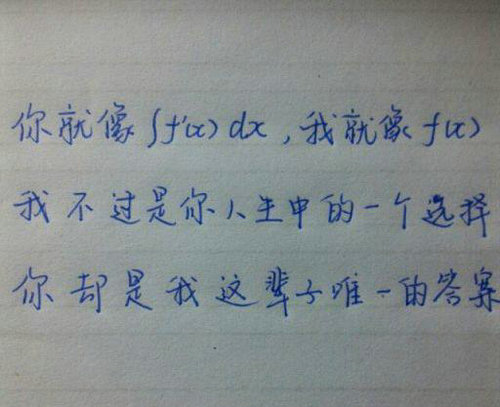 你就像∫f'(x)dx,我就像f(x)
我不过是你人生中的一个选择
你却是我这辈子唯一的答案